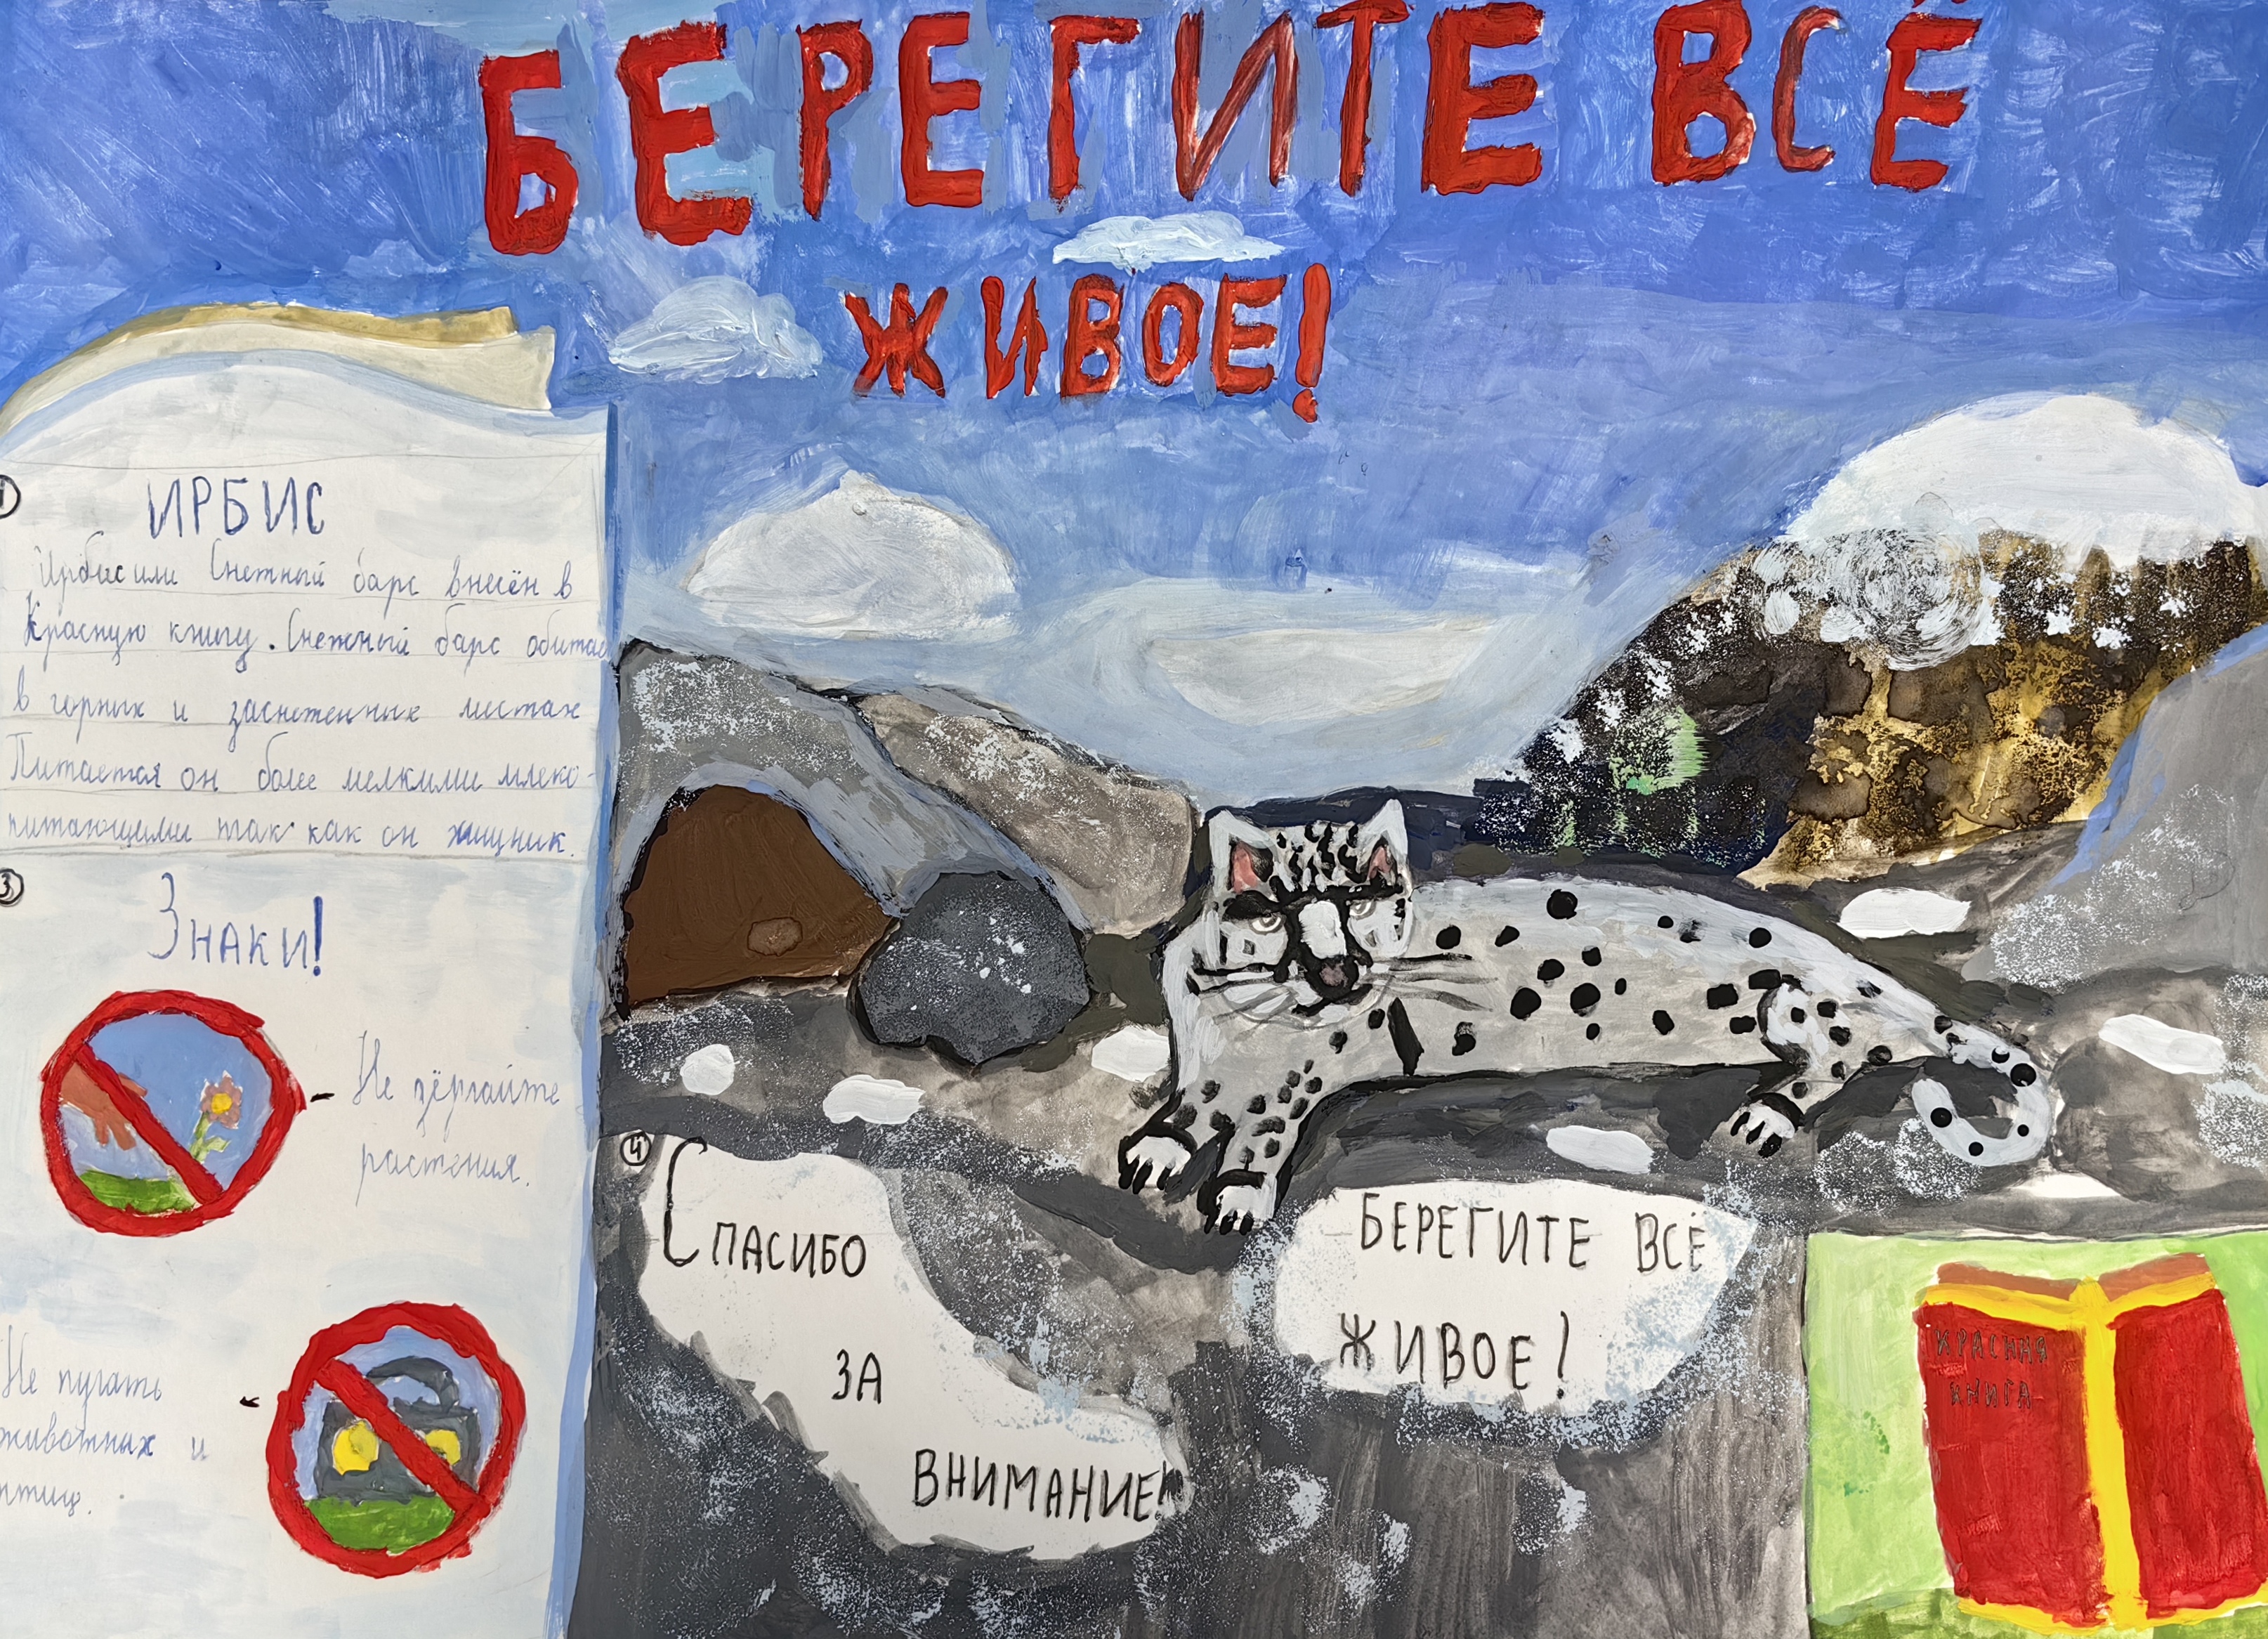 БЕРЕГИТЕ ВСЁ
ЖИВОЕ!
1
ИРБИС
Ирбис или Снежный барс внесён в
Красную книгу. Снежный барс обитае
в горных и заснеженных местах
Питается он более мелкими млеко-
питающими так как он хищник.
3
Знаки!
- Не дёргайте
растения.
Не пугать -
животных и
птиц.
4
Спасибо
за
внимание!
БЕРЕГИТЕ ВСЁ
ЖИВОЕ!
КРАСНАЯ
КНИГА